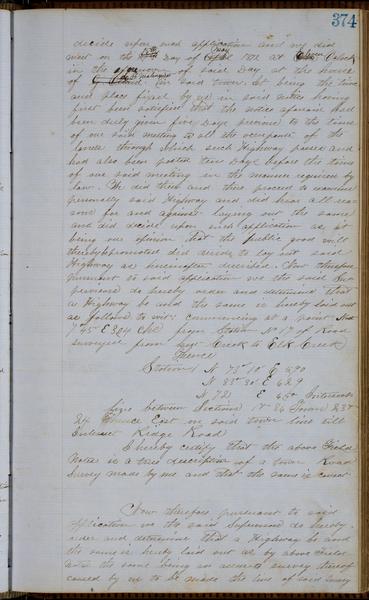 374
decide upon said application and we did
meet on the Day of May 1872 at O'clock
in the of said Day at the house
of in said town it being the time
and place fixed by us in said notice having
first been satisfied that the notice aforesaid had
been duly given five Days previous to the time
of our said meeting to all the occupants of the
lands through which such Highway passes and
had also been posted ten Days before the time
of our said meeting in the manner required by
law. We did then and there proceed to examine
personally said Highway and did hear all rea
sons for and against laying out the same
and did decide upon such application as it
being our opinion that the public good will
thereby be promoted did decide to lay out said
Highway as hereinafter described. Now therefore
pursuant to said application we the said Su
pervisors do hereby order and determine that
a Highway be and the same is hereby laid out
as follows to wit: commencing at a point
from Station No 17 of Road
surveyed from Creek to Elk Creek
Thence
Station N 75° 10' E
N 83° 30' E 629
N 72 E Intersects
line between Sections
24 Thence East on said town line till
Intersect Ridge Road
I hereby certify that the above Field
Notes is a true description of a town Road
Survey made by me and that the same is correct
Now therefore pursuant to said
application we the said Supervisors do hereby
order and determine that a Highway be and
the same is hereby laid out as by above Field
the same being an accurate survey thereof
caused by us to be made the line of said Survey